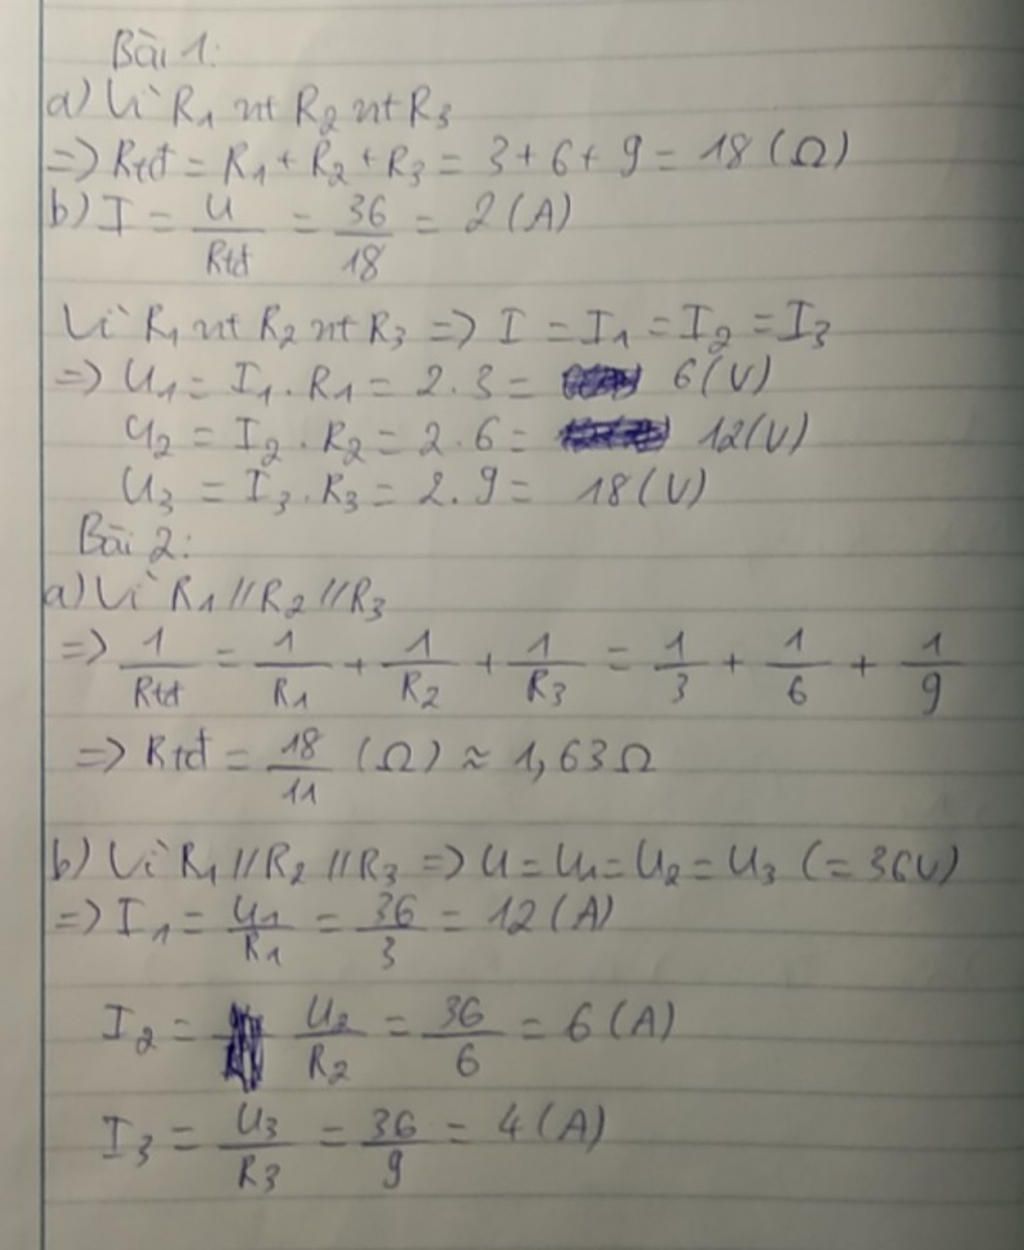 Bài 1:
a) Vì R₁ nt R₂ nt R₃
=> Rtđ = R₁ + R₂ + R₃ = 3 + 6 + 9 = 18 (Ω)
b) I = U/Rtđ = 36/18 = 2 (A)
Vì R₁ nt R₂ nt R₃ => I = I₁ = I₂ = I₃
=> U₁ = I₁ . R₁ = 2 . 3 = 6 (V)
U₂ = I₂ . R₂ = 2 . 6 = 12 (V)
U₃ = I₃ . R₃ = 2 . 9 = 18 (V)
Bài 2:
a) Vì R₁ // R₂ // R₃
=> 1/Rtđ = 1/R₁ + 1/R₂ + 1/R₃ = 1/3 + 1/6 + 1/9
=> Rtđ = 18/11 (Ω) ≈ 1,63 Ω
b) Vì R₁ // R₂ // R₃ => U = U₁ = U₂ = U₃ (= 36V)
=> I₁ = U₁/R₁ = 36/3 = 12 (A)
I₂ = U₂/R₂ = 36/6 = 6 (A)
I₃ = U₃/R₃ = 36/9 = 4 (A)